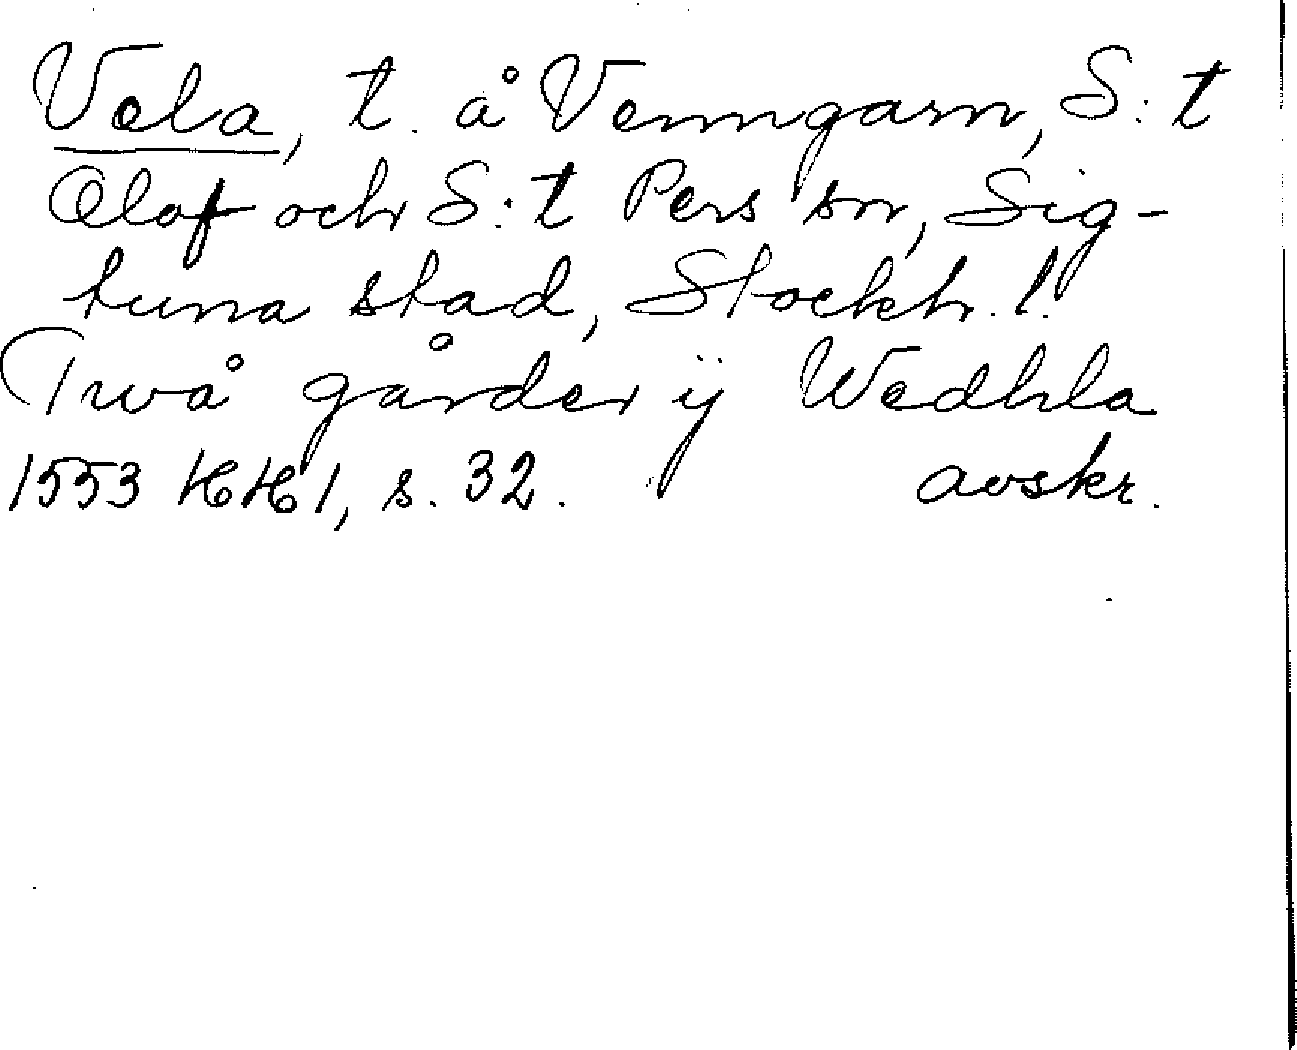 Vela, t. å Venngarn, S:t
Olof och S:t Pers sn, Sig-
tuna stad, Stockh. l.
Twå gårder ÿ Wedhla
1553 HH 1, s. 32. avskr.